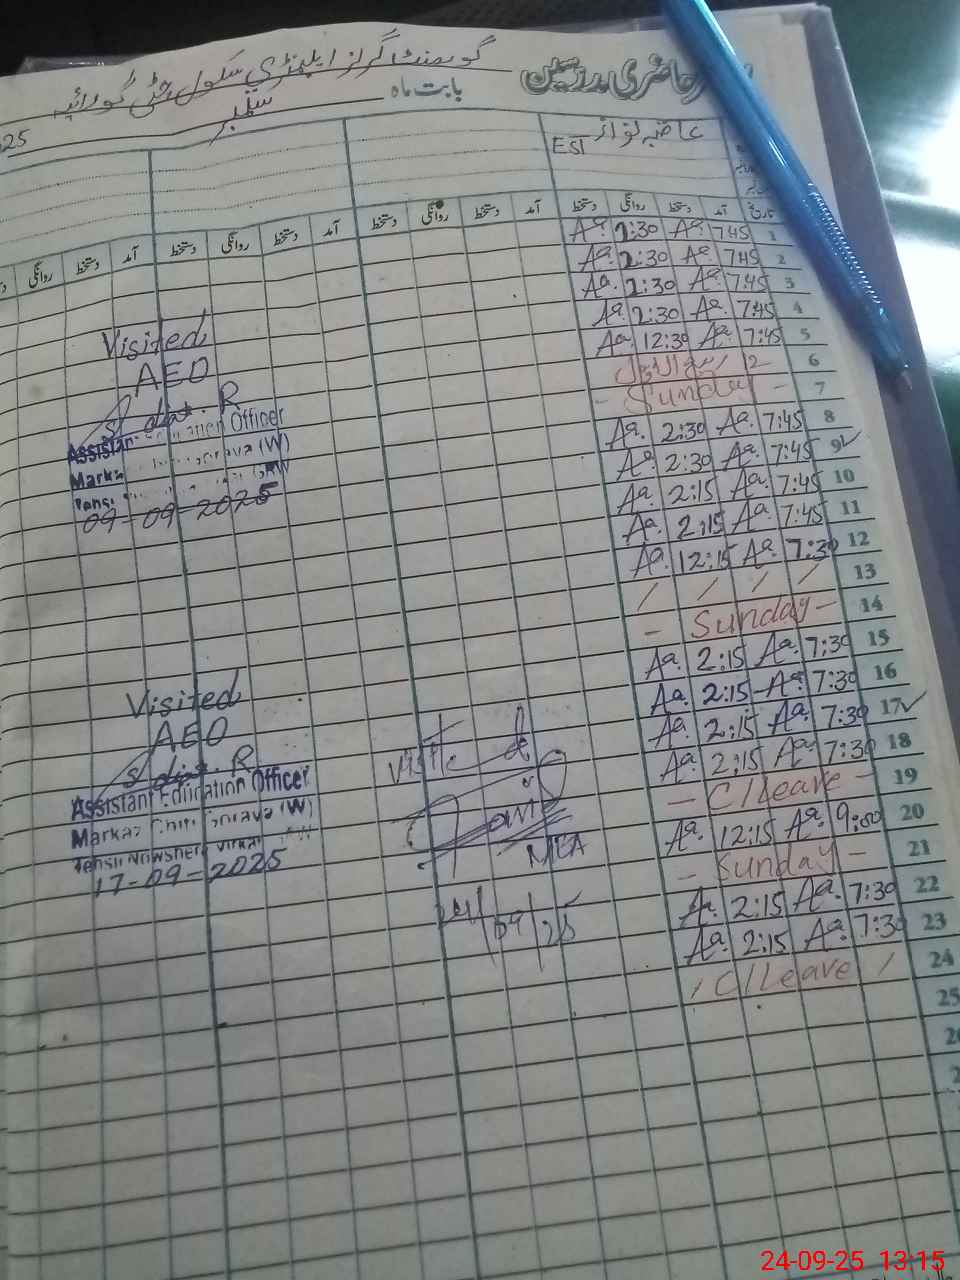 رجسٹر حاضری مدرسین گورنمنٹ گرلز ایلیمنٹری سکول چٹی گورائیہ
بابت ماہ ستمبر 25
EST
تاریخ آمد دستخط روانگی دستخط آمد دستخط روانگی دستخط آمد دستخط روانگی دستخط آمد دستخط روانگی
1 7:45 Aa. 2:30 Aa.
2 7:45 Aa. 2:30 Aa.
3 7:45 Aa. 2:30 Aa.
4 7:45 Aa. 2:30 Aa.
5 7:45 Aa. 12:30 Aa.
6 12 ربیع الاول
7 - Sunday -
8 7:45 Aa. 2:30 Aa.
9 7:45 Aa. 2:30 Aa.
10 7:45 Aa. 2:15 Aa.
11 7:45 Aa. 2:15 Aa.
12 7:30 Aa. 12:15 Aa.
13 / / / /
14 - Sunday -
15 7:30 Aa. 2:15 Aa.
16 7:30 Aa. 2:15 Aa.
17 7:30 Aa. 2:15 Aa.
18 7:30 Aa. 2:15 Aa.
19 - C/Leave -
20 9:00 Aa. 12:15 Aa.
21 - Sunday -
22 7:30 Aa. 2:15 Aa.
23 7:30 Aa. 2:15 Aa.
24 / C/Leave /
25
Visited
AEO
Assistant Education Officer
Markaz (W)
09-09-2025
Visited
AEO
Assistant Education Officer
Markaz Chiti Goraya (W)
Tehsil Nowshera Virkan
17-09-2025
Visited
MEA
24/09/25
24-09-25 13:15